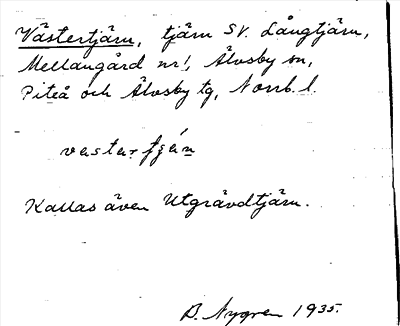 Västertjärn, tjärn SV. Långtjärn,
Mellangård nr 1, Älvsby sn,
Piteå och Älvsby tg, Norrb. l.
Kallas även Utgrävdtjärn.
B. Nygren 1935.